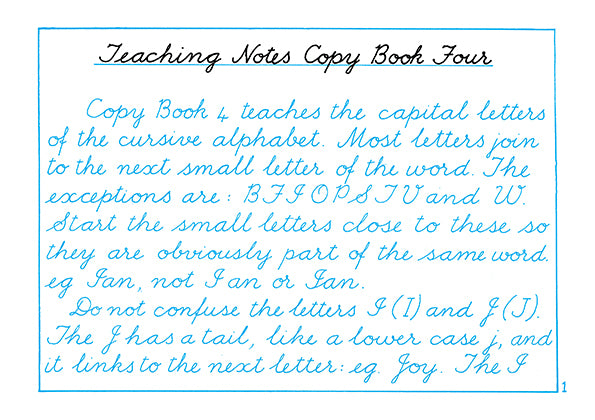 Teaching Notes Copy Book Four
Copy Book 4 teaches the capital letters
of the cursive alphabet. Most letters join
to the next small letter of the word. The
exceptions are: B F I O P S T V and W.
Start the small letters close to these so
they are obviously part of the same word.
eg Ian, not I an or Ian.
Do not confuse the letters I (I) and J (J).
The J has a tail, like a lower case j, and
it links to the next letter: eg. Joy. The I
1